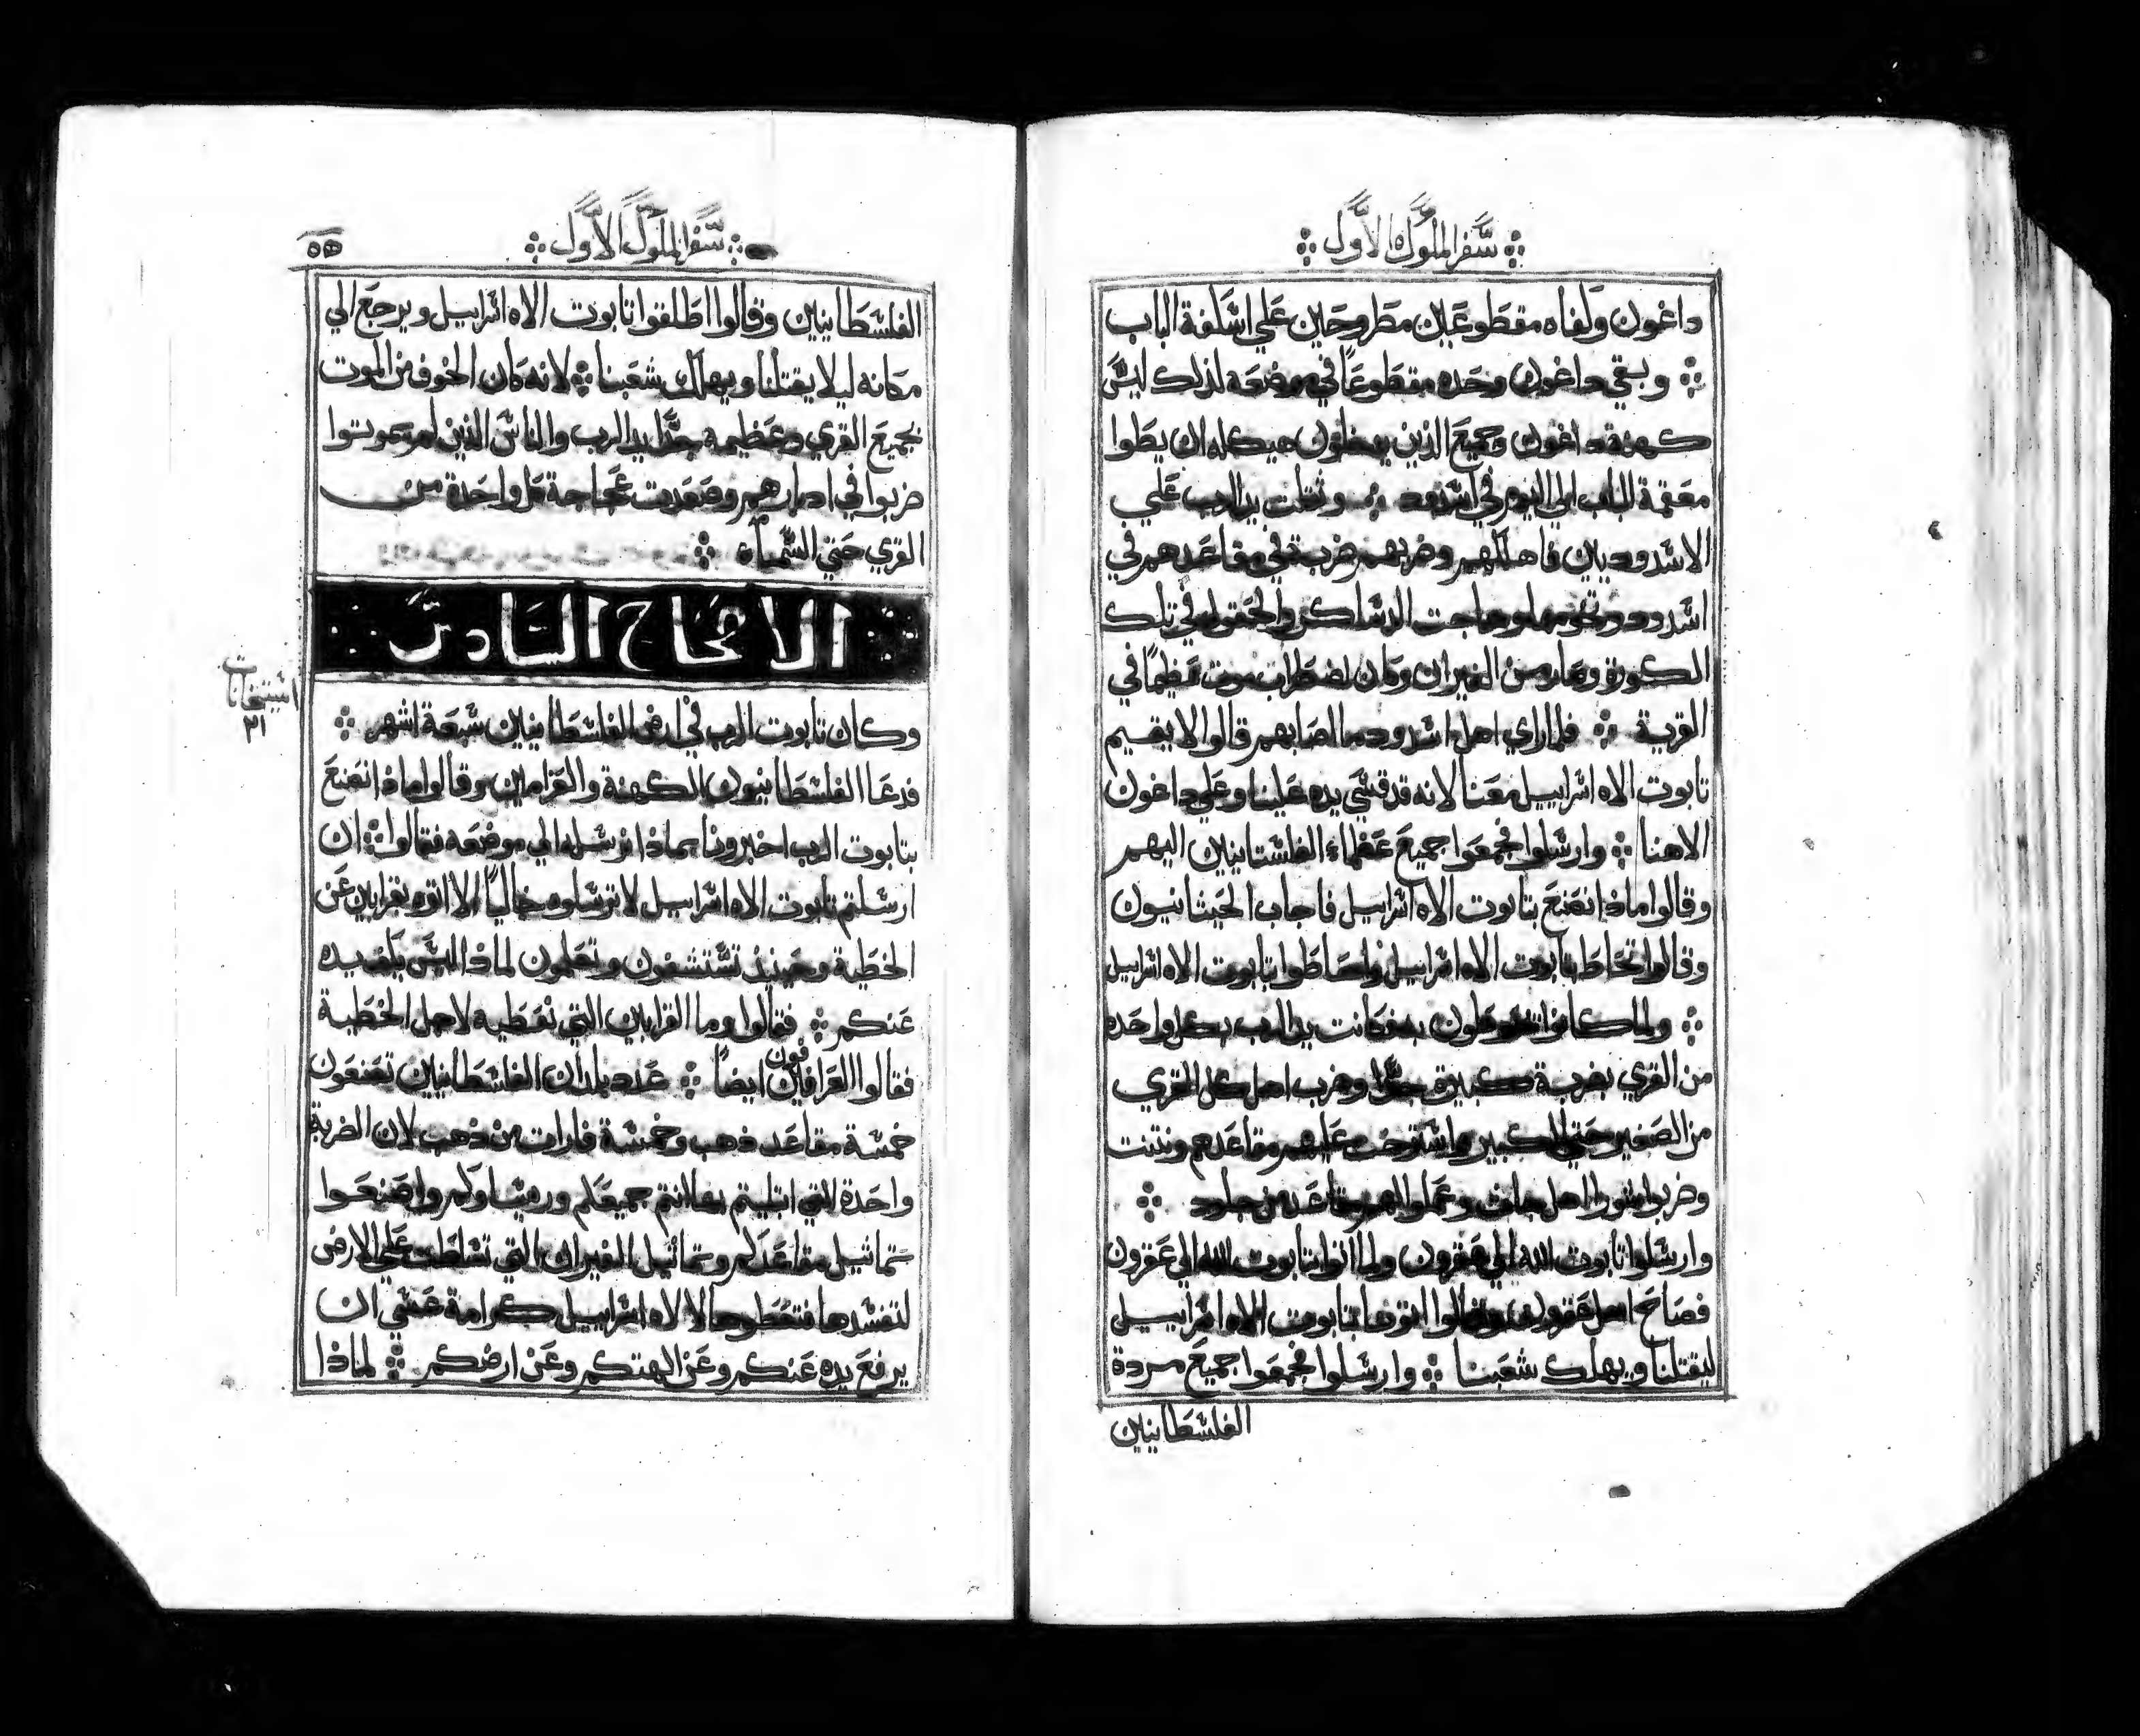 سفر الملوك الاول
داغون وكفاه مقطوعين مطروحين علي اسكفة الباب
وبقي داغون وحده مقطوعًا في موضعه لذلك ليس
كهنة داغون وجميع الذين يدخلون هيكله ان يطوا
معتبة الباب الي اليوم في اشدود وثقلت يد الرب علي
الاشدوديين فاهلكهم وضربهم ضربة في مقاعدهم في
اشدود وتخومها وهاجت الدساكر والحقول في تلك
الكورة وصار من الفيران وكان اضطراب موت عظيمًا في
القرية فلما راي اهل اشدود ما اصابهم قالوا لا يقيم
تابوت الاه اسراييل معنا لانه قد قسي يده علينا وعلي داغون
الاهنا وارسلوا فجمعوا جميع عظماء الفلستانيين اليهم
وقالوا ماذا نصنع بتابوت الاه اسراييل فاجاب الجيثانيون
وقالوا تحاط بتابوت الاه اسراييل واحاطوا بتابوت الاه اسراييل
ولما كانوا بها كانت يد الرب بكل واحده
من القري بضربة كبيرة جدًا وضرب اهل كل القري
من الصغير حتي الكبير واسترخت عليهم مقاعدهم ونتنت
وضربوا شورا اهل جات وعملوا لهم مقاعد من جلود
وارسلوا تابوت الله الي عقرون ولما اتوا بتابوت الله الي عقرون
فصاح اهل عقرون وقالوا اتونا بتابوت الاه اسراييل
ليقتلنا ويهلك شعبنا وارسلوا فجمعوا جميع مردة
الفلسطانيين
سفر الملوك الاول
٥٥
الفلسطانيين وقالوا اطلقوا تابوت الاه اسراييل ويرجع الي
مكانه ليلا يقتلنا ويهلك شعبنا لانه كان الخوف من الموت
بجميع القري وعظيمه جدًا يد الرب والناس الذين لم يموتوا
ضربوا في ادبارهم وصعدت عجاجة كل واحدة من
القري حتي السماء
الاصحاح السادس
وكان تابوت الرب في ارض الفلسطانيين سبعة اشهر
استيخانات
٢١
فدعا الفلسطانيون الكهنة والعرامين وقالوا ماذا نصنع
بتابوت الرب اخبرونا بماذا نرسله الي موضعه فقالوا ان
ارسلتم تابوت الاه اسراييل لا ترسلوه خاليًا الا اتوه بقرابين عن
الخطية وحينيذ تستشفون وتعلمون لماذا ليس يكف يده
عنكم فقالوا وما القرابين التي نعطيه لاجل الخطية
فقالوا العرافين فون ايضًا عدد بلدان الفلسطانيين تصنعون
خمسة مقاعد ذهب وخمسة فارات من ذهب لان الضربة
واحدة التي ابتليتم بها انتم جميعكم وروساوكم واصنعوا
تماثيل مقاعدكم وتماثيل الفيران التي تسلطت علي الارض
لتفسدها فتعطوها لالاه اسراييل كرامة عسي ان
يرفع يده عنكم وعن الهتكم وعن ارضكم لماذا